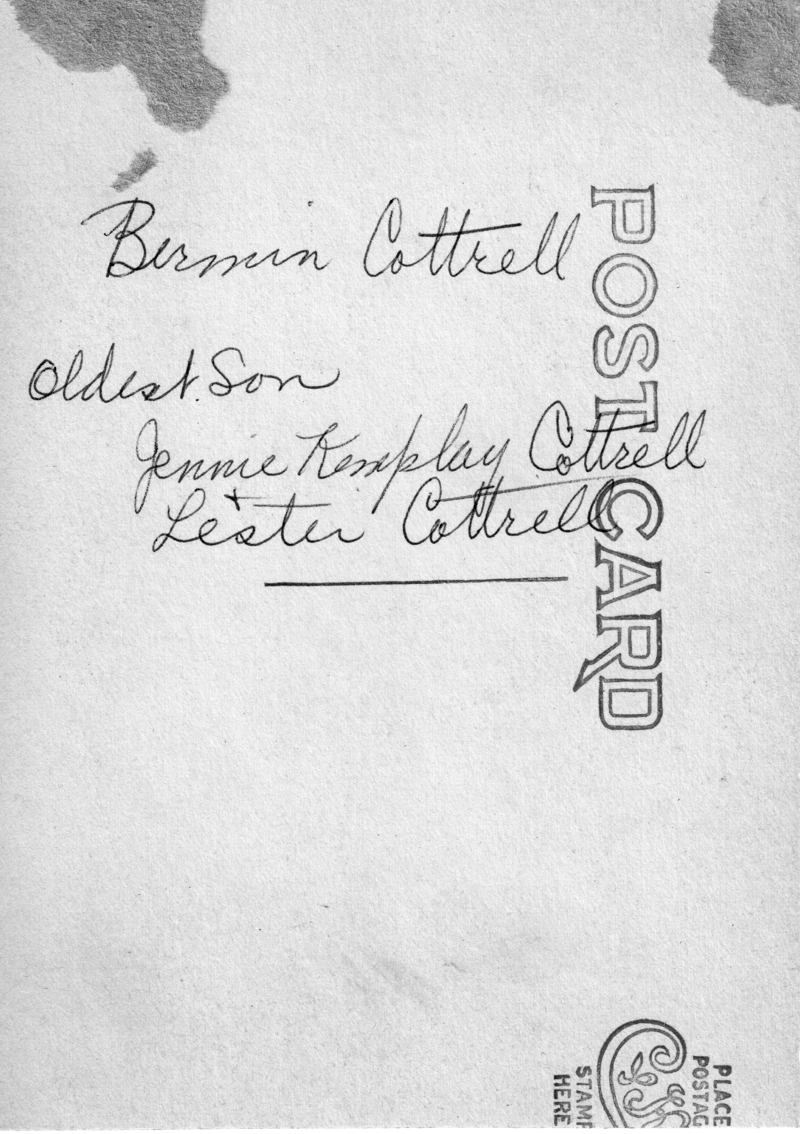 Bermin Cottrell
Oldest Son
Jennie Kemplay Cottrell
+
Lester Cottrell
POST CARD
PLACE
POSTAG
STAMP
HERE